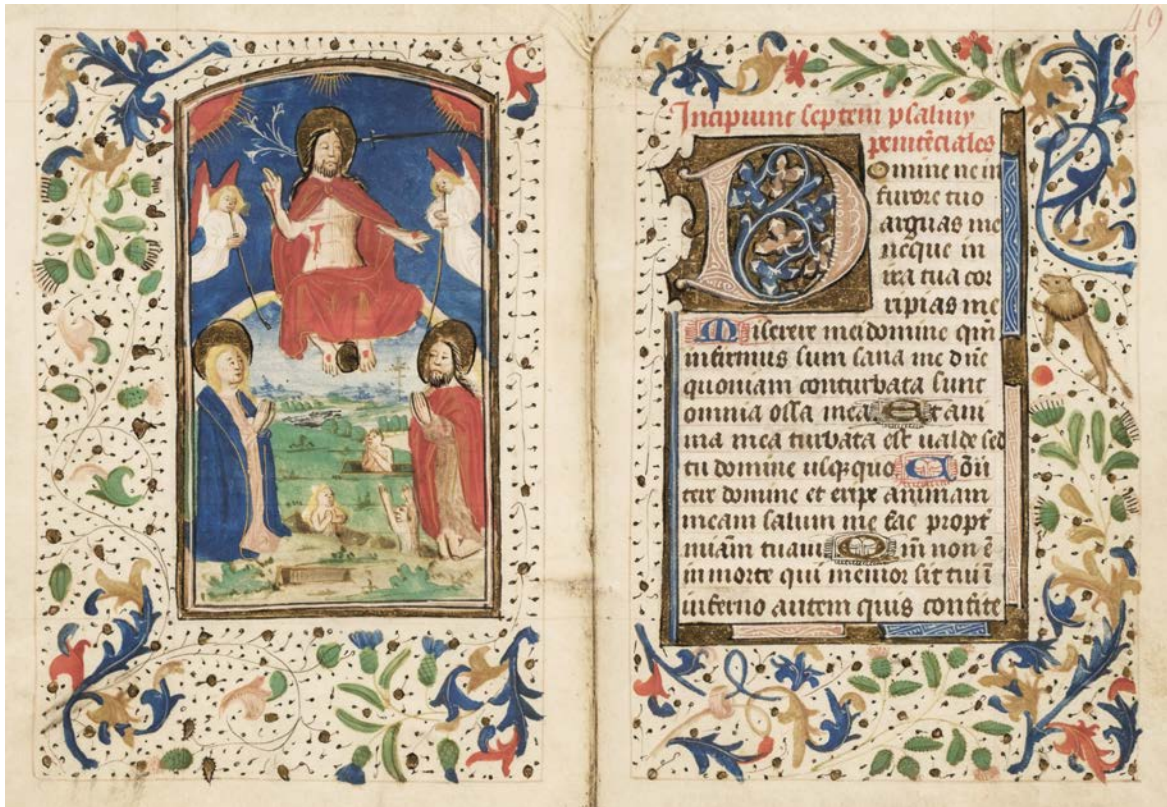 49
Incipiunt septem psalmy
penitẽciales
Domine ne in
furore tuo
arguas me
neque in
ira tua cor
ripias me
Miserere mei domine qm̃
infirmus sum sana me dñe
quoniam conturbata sunt
omnia ossa mea Et ani
ma mea turbata est ualde sed
tu domine usq̃ quo Cõu
tere domine et eripe animam
meam saluum me fac propt̾
miam̃ tuam Qm̃ non ẽ
in morte qui memor sit tui ĩ
inferno autem quis confite